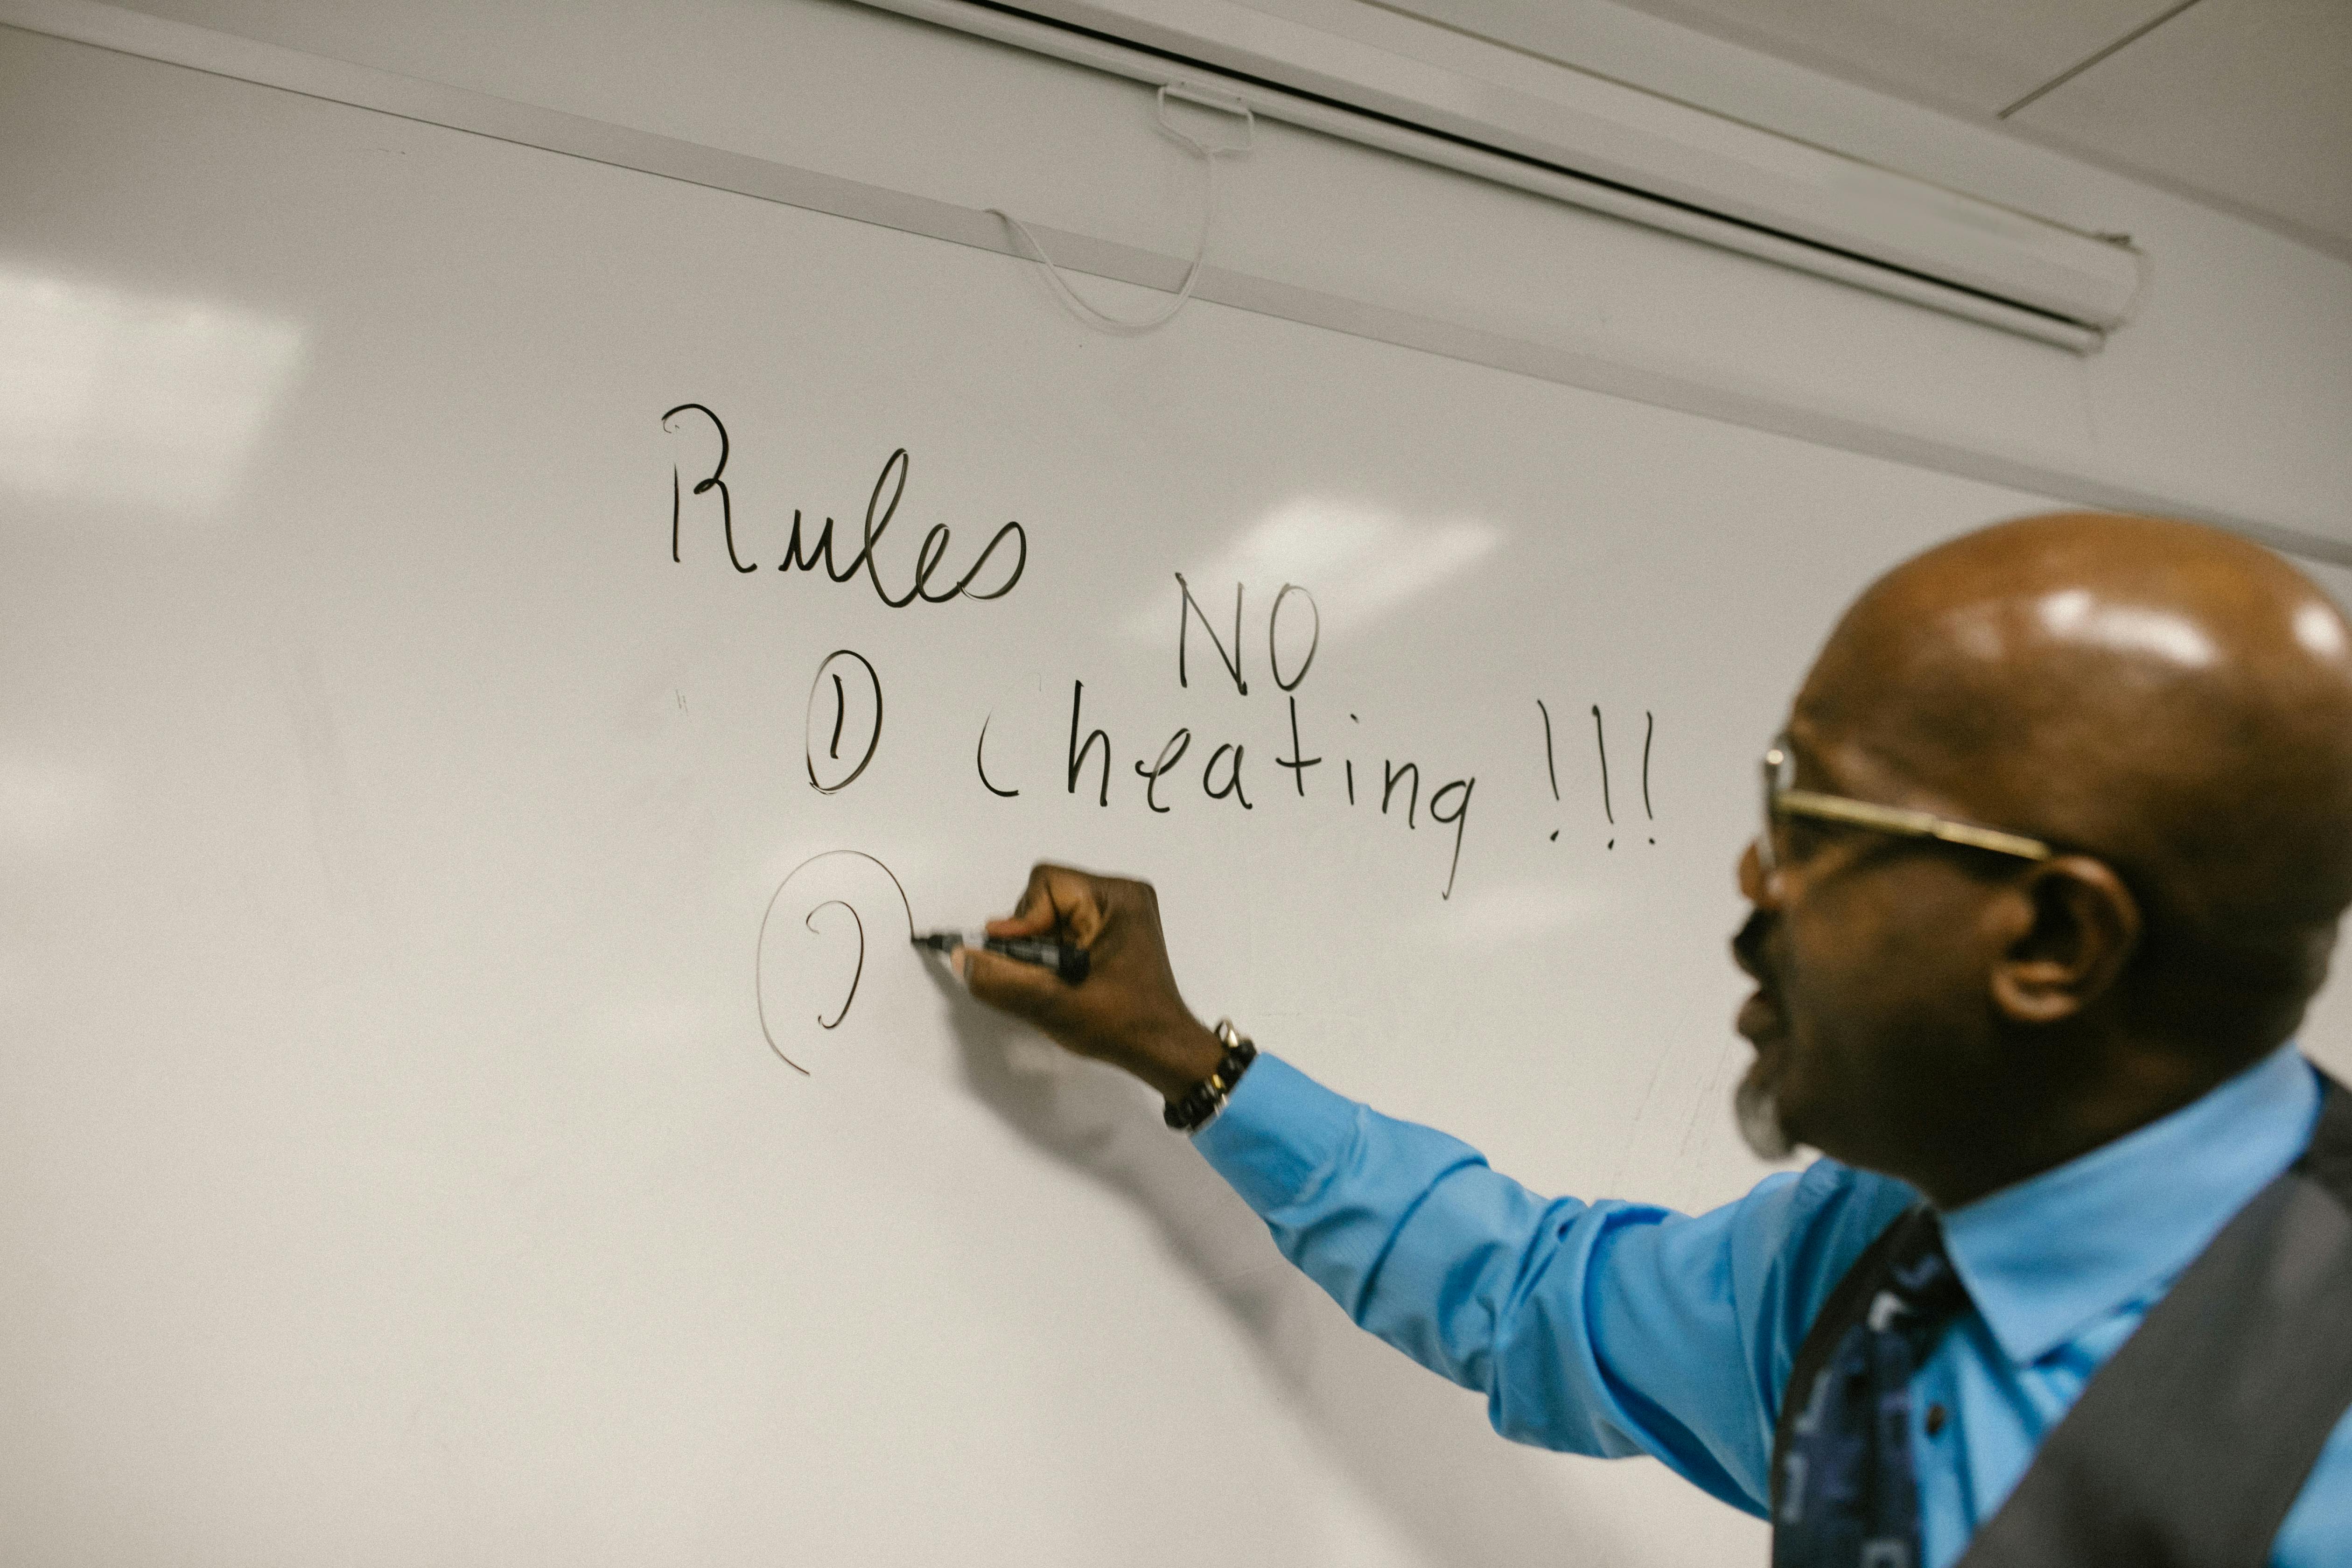 Rules
NO
① Cheating !!!